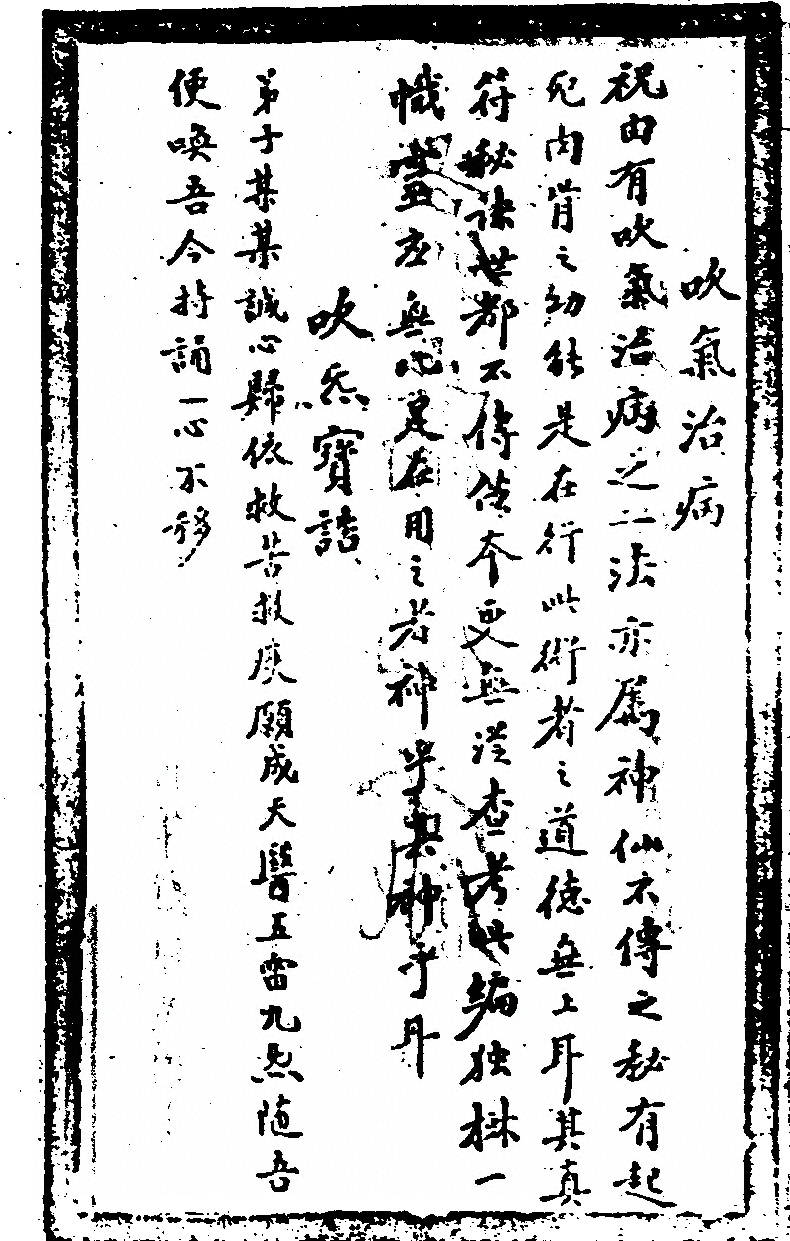 吹氣治病
祝由有吹氣治病之二法亦屬神仙不傳之秘有起
死肉背之功能是在行此術者之道德無上耳其真
符秘訣世都不傳使本更無從查考此編独樹一
幟靈应無比是在用之者神乎其神乎耳
吹炁寶誥
弟子某某誠心歸依救苦救庚願成天醫五雷九炁随吾
便喚吾今持誦一心不移